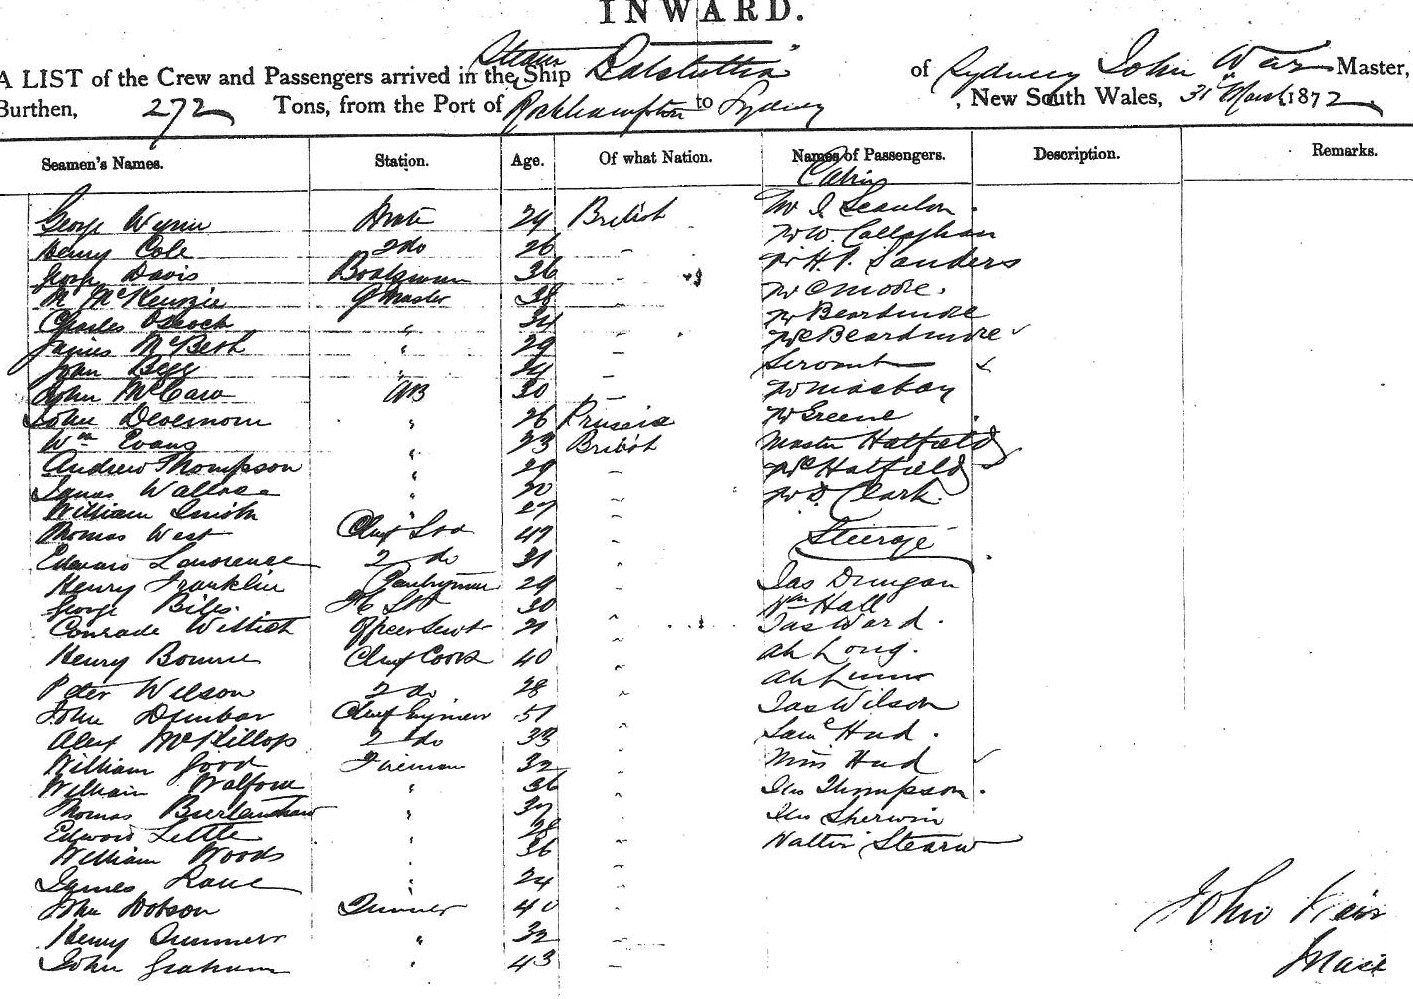 INWARD.
Steam
A LIST of the Crew and Passengers arrived in the Ship Balclutha of Sydney John Weir Master,
Burthen, 272 Tons, from the Port of Rockhampton to Sydney, New South Wales, 31st March 1872
Seamen's Names. Station. Age. Of what Nation. Names of Passengers. Description. Remarks.
Cabin
George Wynn Mate 29 British Mr J. Scanlon
Henry Cole 2 do 26 " Mr W. Callaghan
George Davis Boatswain 36 " Mr H. P. Sanders
M McKenzie Q Master 38 " Mr C Moore
Charles " 34 " Mr Beardmore
James McBeth " 29 " Mrs Beardmore
John Begg " 24 " Servant
John McCaw AB 30 " Mr Mackay
John " 26 Prussia Mr Greene
Wm Evans " 23 British Master Hatfield
Andrew Thompson " 29 " Mrs Hatfield
James Wallace " 20 " Mr D. Clark
William Smith " 27 "
Thomas West Chief Std 47 " Steerage
Edward Lawrence 2 do 31 "
Henry Franklin Pantryman 29 " Jas Dungan
George Biles F C Std 30 " Wm Hall
Conrade Wittich Officer Servt 21 " Jas Ward
Henry Bourne Chief Cook 40 " Ah Long
Peter Wilson 2 do 28 " Ah
John Dunbar Chief Engineer 51 " Jas Wilson
Alex McKillop 2 do 33 " Saml Hud
William Good Fireman 32 " Miss Hud
William Walford " 36 " Jno Thompson
Thomas " 37 " Jno Sherwin
Edward Little " 28 " Walter
William Woods " 36 "
James Lane " 24 "
John Dobson Trimmer 40 "
Henry " 32 "
John Graham " 43 "
John Weir
Mast